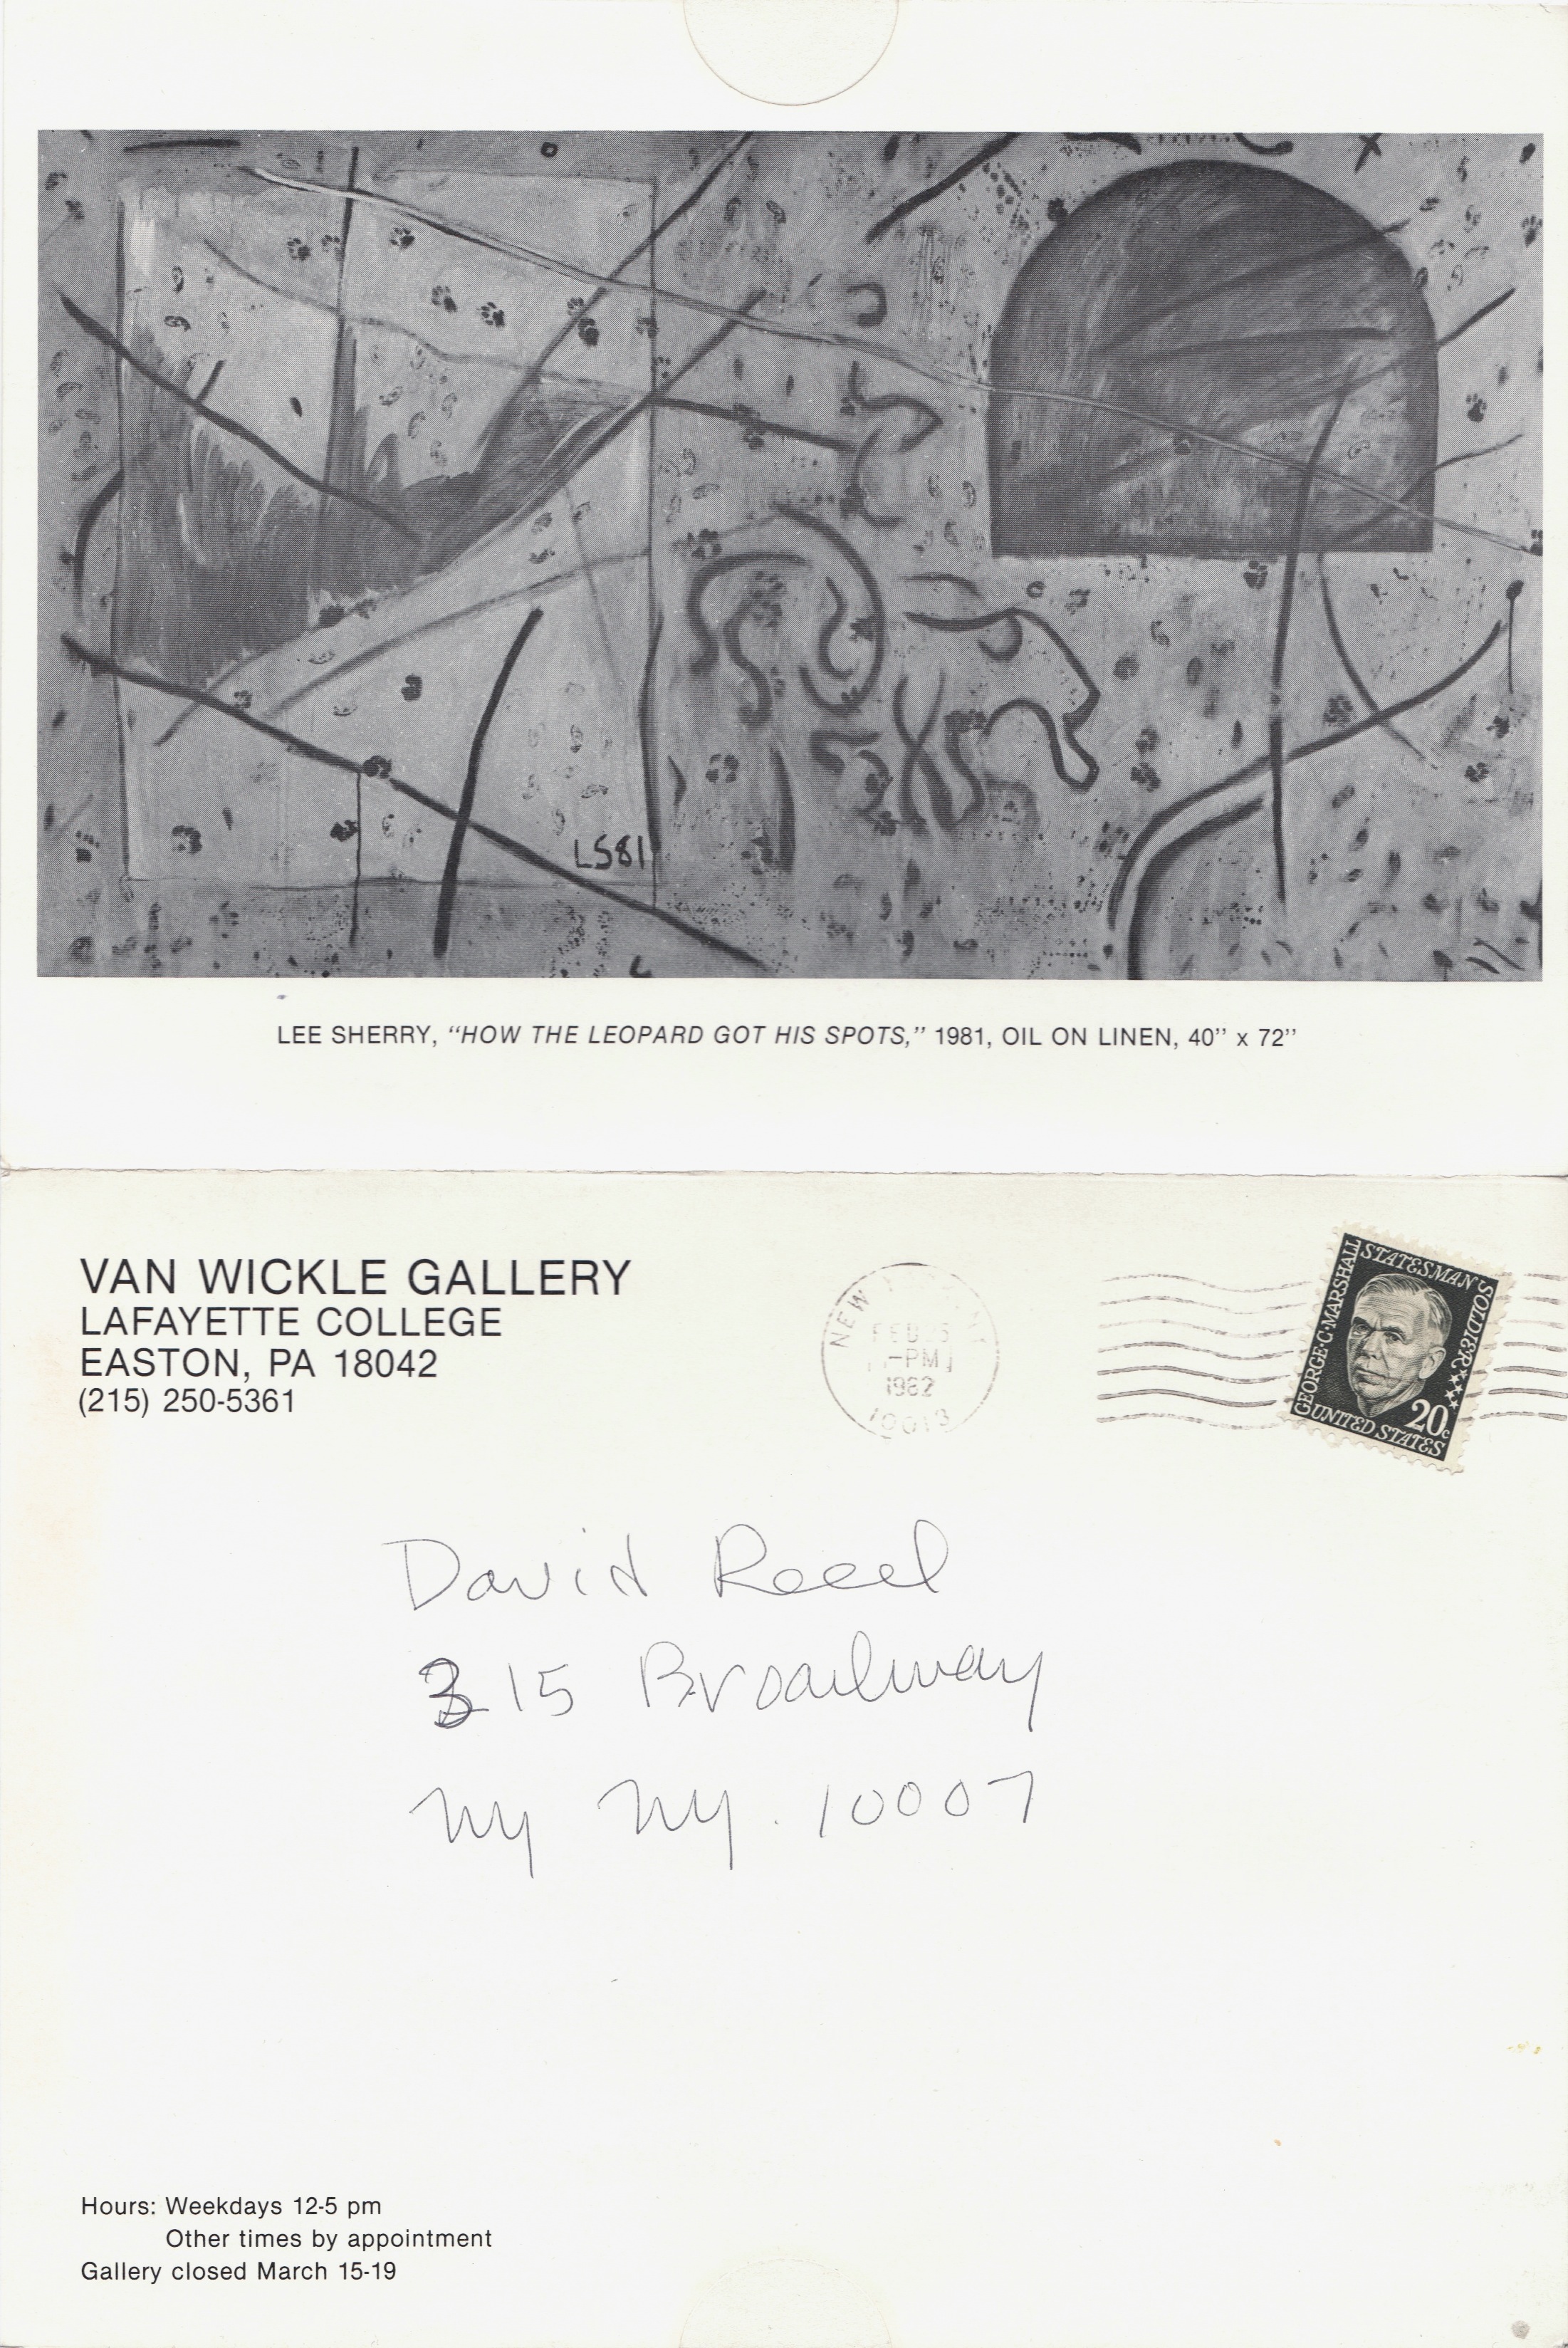 LS81
LEE SHERRY, “HOW THE LEOPARD GOT HIS SPOTS,” 1981, OIL ON LINEN, 40” x 72”
VAN WICKLE GALLERY
LAFAYETTE COLLEGE
EASTON, PA 18042
(215) 250-5361
NEW
FEB
PM
1982
10013
GEORGE·C·MARSHALL
STATESMAN
SOLDIER
20c
UNITED STATES
David Reed
315 Broadway
NY NY. 10007
Hours: Weekdays 12-5 pm
Other times by appointment
Gallery closed March 15-19